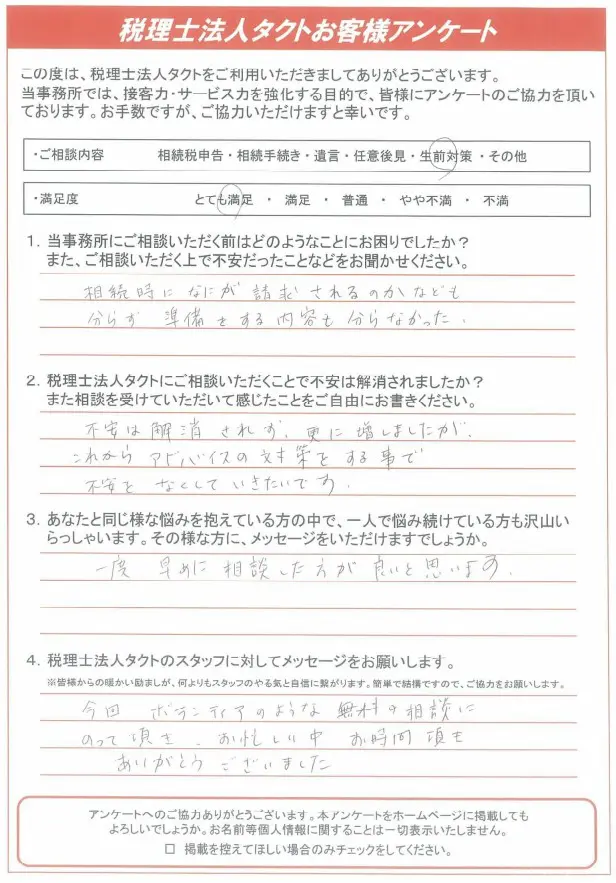 税理士法人タクトお客様アンケート
この度は、税理士法人タクトをご利用いただきましてありがとうございます。
当事務所では、接客力・サービス力を強化する目的で、皆様にアンケートのご協力を頂い
ております。お手数ですが、ご協力いただけますと幸いです。
・ご相談内容　相続税申告・相続手続き・遺言・任意後見・生前対策・その他
・満足度　とても満足 ・ 満足 ・ 普通 ・ やや不満 ・ 不満
1．当事務所にご相談いただく前はどのようなことにお困りでしたか？
また、ご相談いただく上で不安だったことなどをお聞かせください。
相続時になにが請求されるのかなども
分らず 準備をする内容も分らなかった.
2．税理士法人タクトにご相談いただくことで不安は解消されましたか？
また相談を受けていただいて感じたことをご自由にお書きください。
不安は解消されず、更に増しましたが、
これからアドバイスの対策をする事で
不安をなくしていきたいです.
3．あなたと同じ様な悩みを抱えている方の中で、一人で悩み続けている方も沢山い
らっしゃいます。その様な方に、メッセージをいただけますでしょうか。
一度 早めに相談した方が良いと思います.
4．税理士法人タクトのスタッフに対してメッセージをお願いします。
※皆様からの暖かい励ましが、何よりもスタッフのやる気と自信に繋がります。簡単で結構ですので、ご協力をお願いします。
今回 ボランティアのような無料の相談に
のって頂き、お忙しい中 お時間頂き
ありがとうございました
アンケートへのご協力ありがとうございます。本アンケートをホームページに掲載しても
よろしいでしょうか。お名前等個人情報に関することは一切表示いたしません。
□ 掲載を控えてほしい場合のみチェックをしてください。